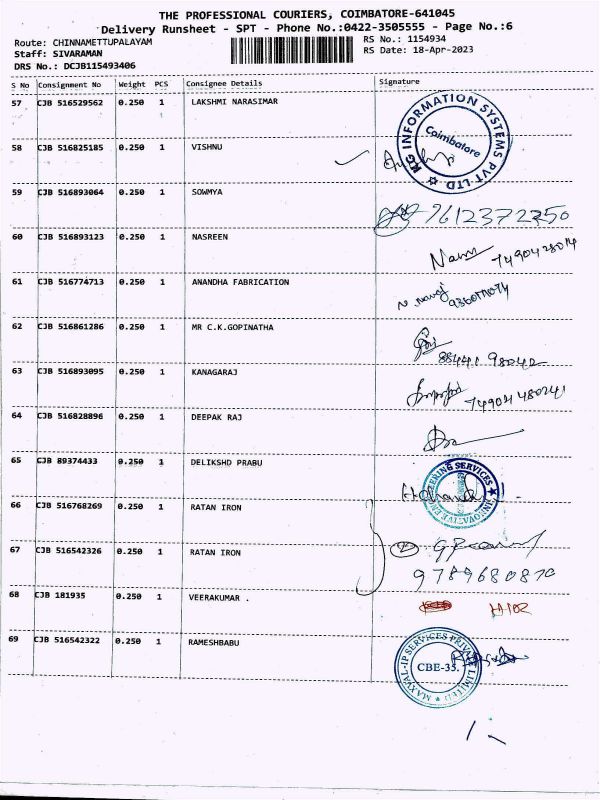 THE PROFESSIONAL COURIERS, COIMBATORE-641045
Delivery Runsheet - SPT - Phone No.:0422-3505555 - Page No.:6
Route: CHINNAMETTUPALAYAM RS No.: 1154934
Staff: SIVARAMAN RS Date: 18-Apr-2023
DRS No.: DCJB115493406
S No Consignment No Weight PCS Consignee Details Signature
57 CJB 516529562 0.250 1 LAKSHMI NARASIMAR
KG INFORMATION SYSTEMS PVT LTD
Coimbatore
58 CJB 516825185 0.250 1 VISHNU
59 CJB 516893064 0.250 1 SOWMYA
9612372250
60 CJB 516893123 0.250 1 NASREEN
7490428014
61 CJB 516774713 0.250 1 ANANDHA FABRICATION
62 CJB 516861286 0.250 1 MR C.K.GOPINATHA
88441 98042
63 CJB 516893095 0.250 1 KANAGARAJ
64 CJB 516828896 0.250 1 DEEPAK RAJ
65 CJB 89374433 0.250 1 DELIKSHD PRABU
INNOVATIVE ENGINEERING SERVICES
66 CJB 516768269 0.250 1 RATAN IRON
67 CJB 516542326 0.250 1 RATAN IRON
9789680870
68 CJB 181935 0.250 1 VEERAKUMAR .
69 CJB 516542322 0.250 1 RAMESHBABU
MAXVAL-IP SERVICES PRIVATE LIMITED
CBE-35.